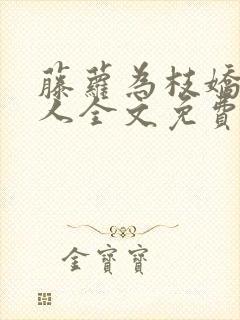 藤蘿為枝嬌
人全文免費
金寶寶